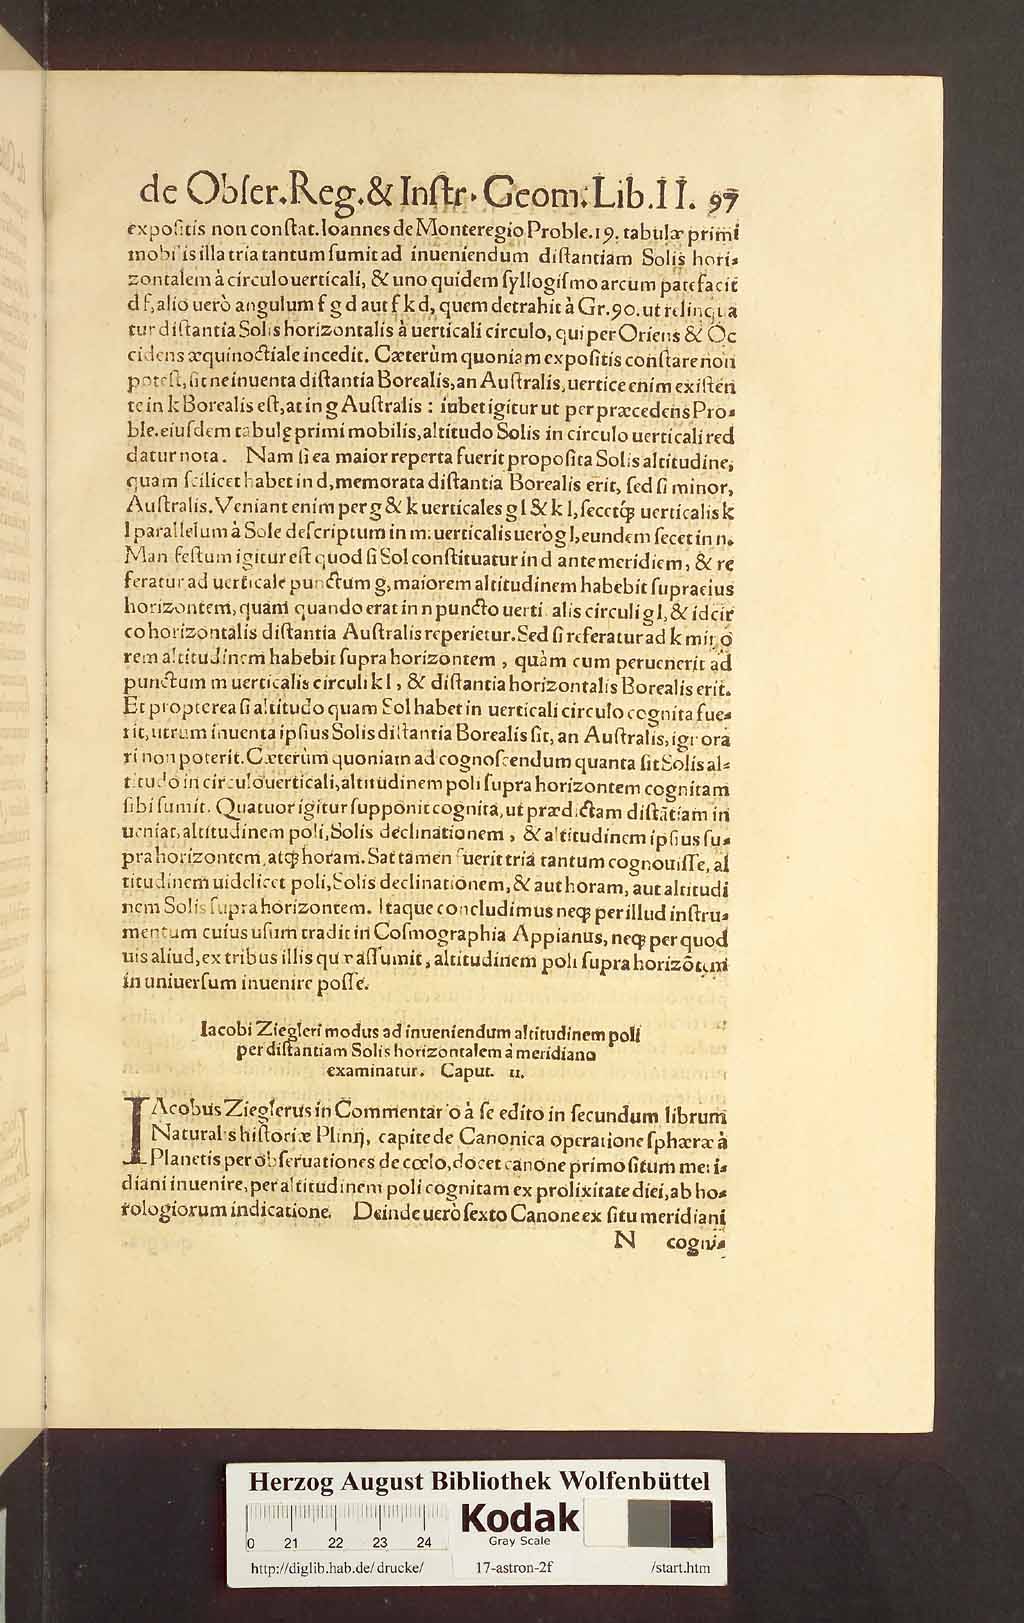 de Obſer.Reg.& Inſtr. Geom. Lib.II. 97
expoſitis non conſtat. Ioannes de Monteregio Proble.19. tabulæ primi
mobilis illa tria tantum ſumit ad inueniendum diſtantiam Solis hori-
zontalem à circulo uerticali, & uno quidem ſyllogiſmo arcum patefacit
d f, alio uerò angulum f g d aut f k d, quem detrahit à Gr.90. ut relinqua
tur diſtantia Solis horizontalis à uerticali circulo, qui per Oriens & Oc
cidens æquinoctiale incedit. Cæterùm quoniam expoſitis conſtare non
poteſt, ſit ne inuenta diſtantia Borealis, an Auſtralis, uertice enim exiſten
te in k Borealis eſt, at in g Auſtralis : iubet igitur ut per præcedens Pro-
ble. eiuſdem tabulę primi mobilis, altitudo Solis in circulo uerticali red
datur nota. Nam ſi ea maior reperta fuerit propoſita Solis altitudine,
quam ſcilicet habet in d, memorata diſtantia Borealis erit, ſed ſi minor,
Auſtralis. Veniant enim per g & k uerticales g l & k l, ſecetq́; uerticalis k
l parallelum à Sole deſcriptum in m: uerticalis uerò g l, eundem ſecet in n.
Man feſtum igitur eſt quod ſi Sol conſtituatur in d ante meridiem, & re
feratur ad uerticale punctum g, maiorem altitudinem habebit ſupra eius
horizontem, quàm quando erat in n puncto uerti alis circuli g l, & idcir
co horizontalis diſtantia Auſtralis reperietur. Sed ſi referatur ad k mino
rem altitudinem habebit ſupra horizontem , quàm cum peruenerit ad
punctum m uerticalis circuli k l , & diſtantia horizontalis Borealis erit.
Et propterea ſi altitudo quam Sol habet in uerticali circulo cognita fue-
rit, utrum inuenta ipſius Solis diſtantia Borealis ſit, an Auſtralis, ignora
ri non poterit. Cæterùm quoniam ad cognoſcendum quanta ſit Solis al-
titudo in circulo uerticali, altitudinem poli ſupra horizontem cognitam
ſibi ſumit. Quatuor igitur ſupponit cognita, ut prædictam diſtãtiam in
ueniat, altitudinem poli, Solis declinationem , & altitudinem ipſius ſu-
pra horizontem, atq; horam. Sat tamen fuerit tria tantum cognouiſſe, al
titudinem uidelicet poli, Solis declinationem, & aut horam, aut altitudi
nem Solis ſupra horizontem. Itaque concludimus neq; per illud inſtru-
mentum cuius uſum tradit in Coſmographia Appianus, neq; per quod
uis aliud, ex tribus illis quæ aſſumit, altitudinem poli ſupra horizõtem
in uniuerſum inuenire poſſe.
Iacobi Ziegleri modus ad inueniendum altitudinem poli
per diſtantiam Solis horizontalem à meridiano
examinatur. Caput. 11.
IAcobus Zieglerus in Commentar o à ſe edito in ſecundum librum
Natural s hiſtoriæ Plinij, capite de Canonica operatione ſphæræ à
Planetis per obſeruationes de cœlo, docet canone primo ſitum meri-
diani inuenire, per altitudinem poli cognitam ex prolixitate diei, ab ho-
rologiorum indicatione. Deinde uerò ſexto Canone ex ſitu meridiani
N cogni-
Herzog August Bibliothek Wolfenbüttel
0 21 22 23 24
Kodak
Gray Scale
http://diglib.hab.de/drucke/ 17-astron-2f /start.htm